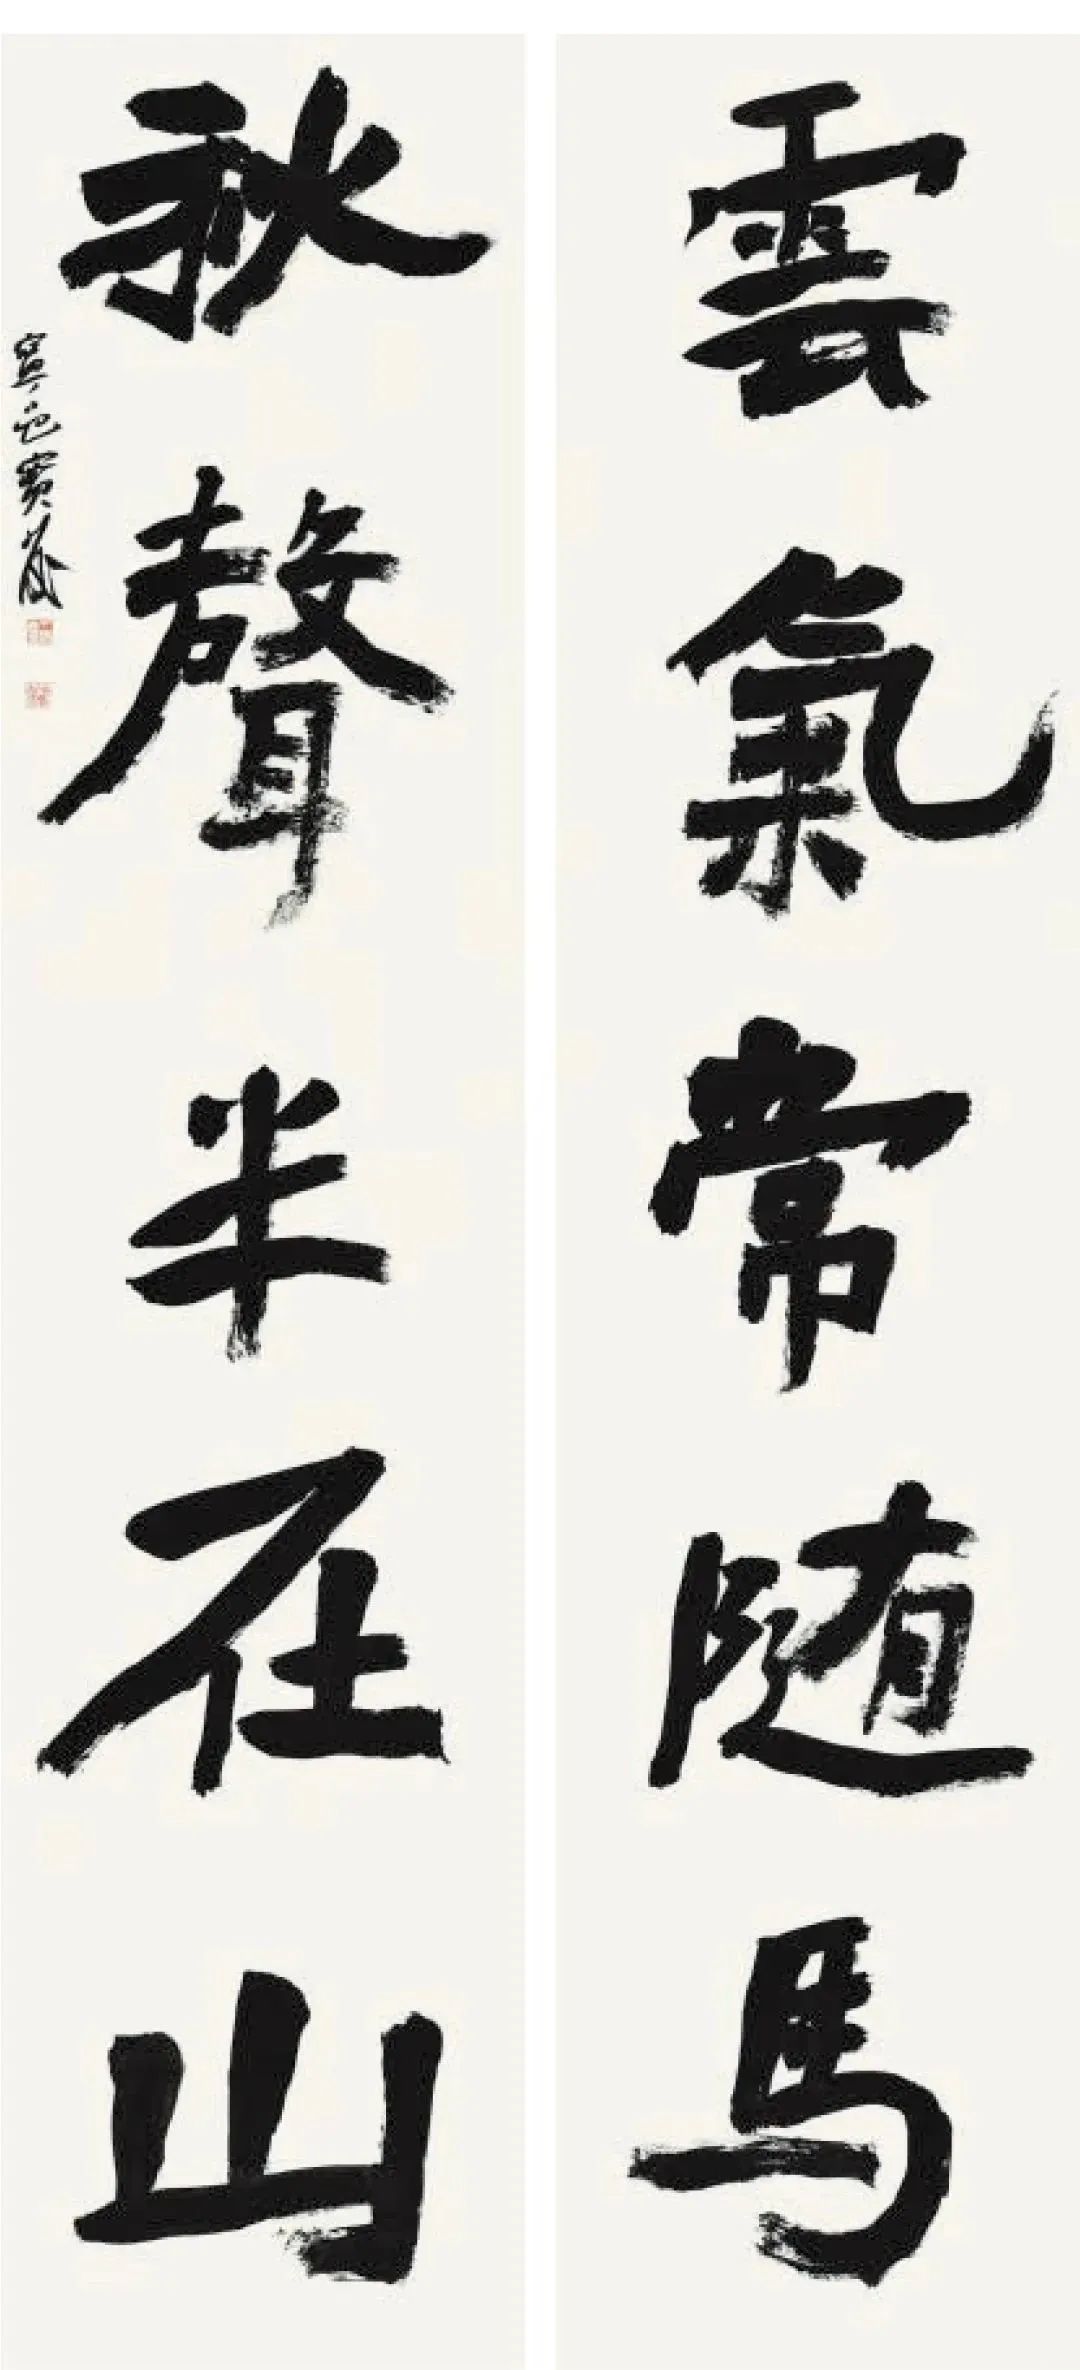 雲氣常随馬
秋聲半在山